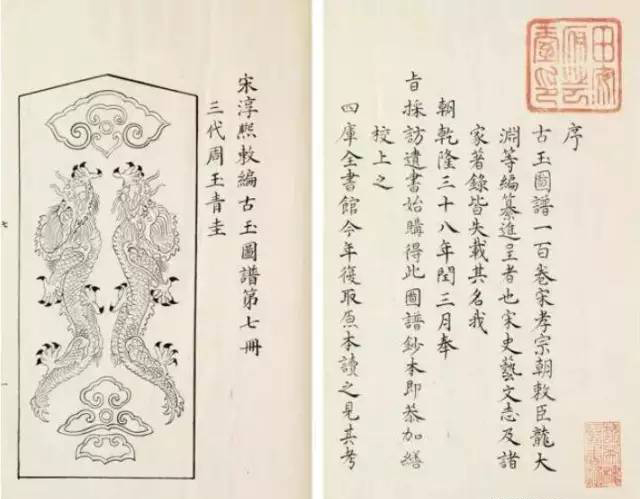 序
古玉圖譜一百卷宋孝宗朝敕臣龍大
淵等編纂進呈者也宋史藝文志及諸
家著錄皆失載其名我
朝乾隆三十八年閏三月奉
旨採訪遺書始購得此圖譜鈔本即恭加繕
校上之
四庫全書館今年復取原本讀之見其考
宋淳熙敕編古玉圖譜第七冊
三代周王青圭
七
一